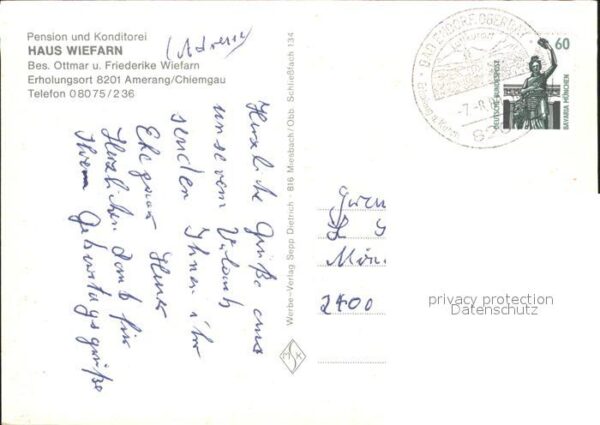 Pension und Konditorei
HAUS WIEFARN
Bes. Ottmar u. Friederike Wiefarn
Erholungsort 8201 Amerang/Chiemgau
Telefon 08075/236
(Adresse)
Herzliche Grüße aus
unserem Urlaub
senden Ihnen Ihr
Ehepaar
Herzlichen Dank für
Ihrem Geburtstagsgrüße
Werbe-Verlag Sepp Dietrich · 816 Miesbach/Obb. Schließfach 134
BAD ENDORF, OBERBAY
60
DEUTSCHE BUNDESPOST
BAVARIA MÜNCHEN
2400
privacy protection
Datenschutz